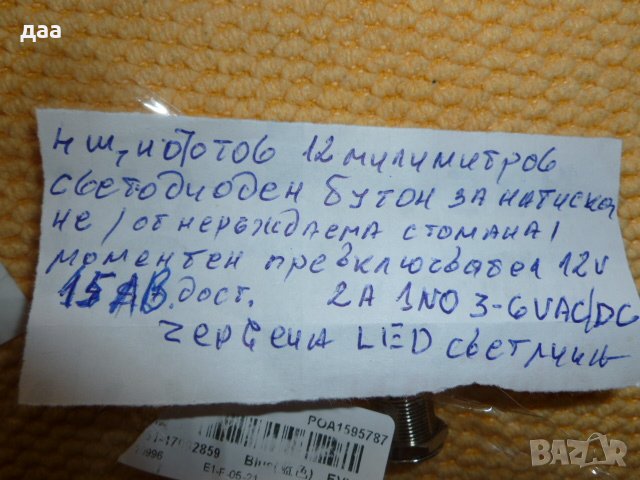 даа
4 шт, 12 милиметров
светодиоден бутон за натиска
не /от неръждаема стомана/
моментен превключвател 12V
15 ЛВ. дост. 2А 1NO 3-6VAC/DC
червена LED светлинь
POA1595787
2859
E1-F-05-21
BAZAR